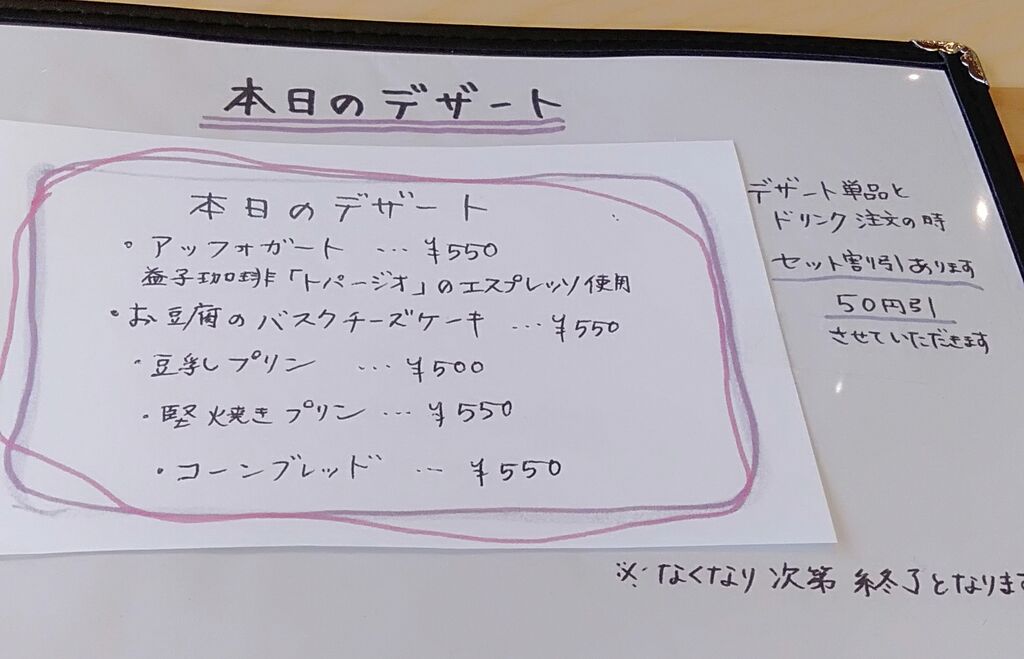 本日のデザート
本日のデザート
・アッフォガート … ¥550
益子珈琲「トパージオ」のエスプレッソ使用
・お豆腐のバスクチーズケーキ … ¥550
・豆乳プリン … ¥500
・堅焼きプリン … ¥550
・コーンブレッド … ¥550
デザート単品と
ドリンク注文の時
セット割引あります
50円引
させていただきます
※なくなり次第終了となります